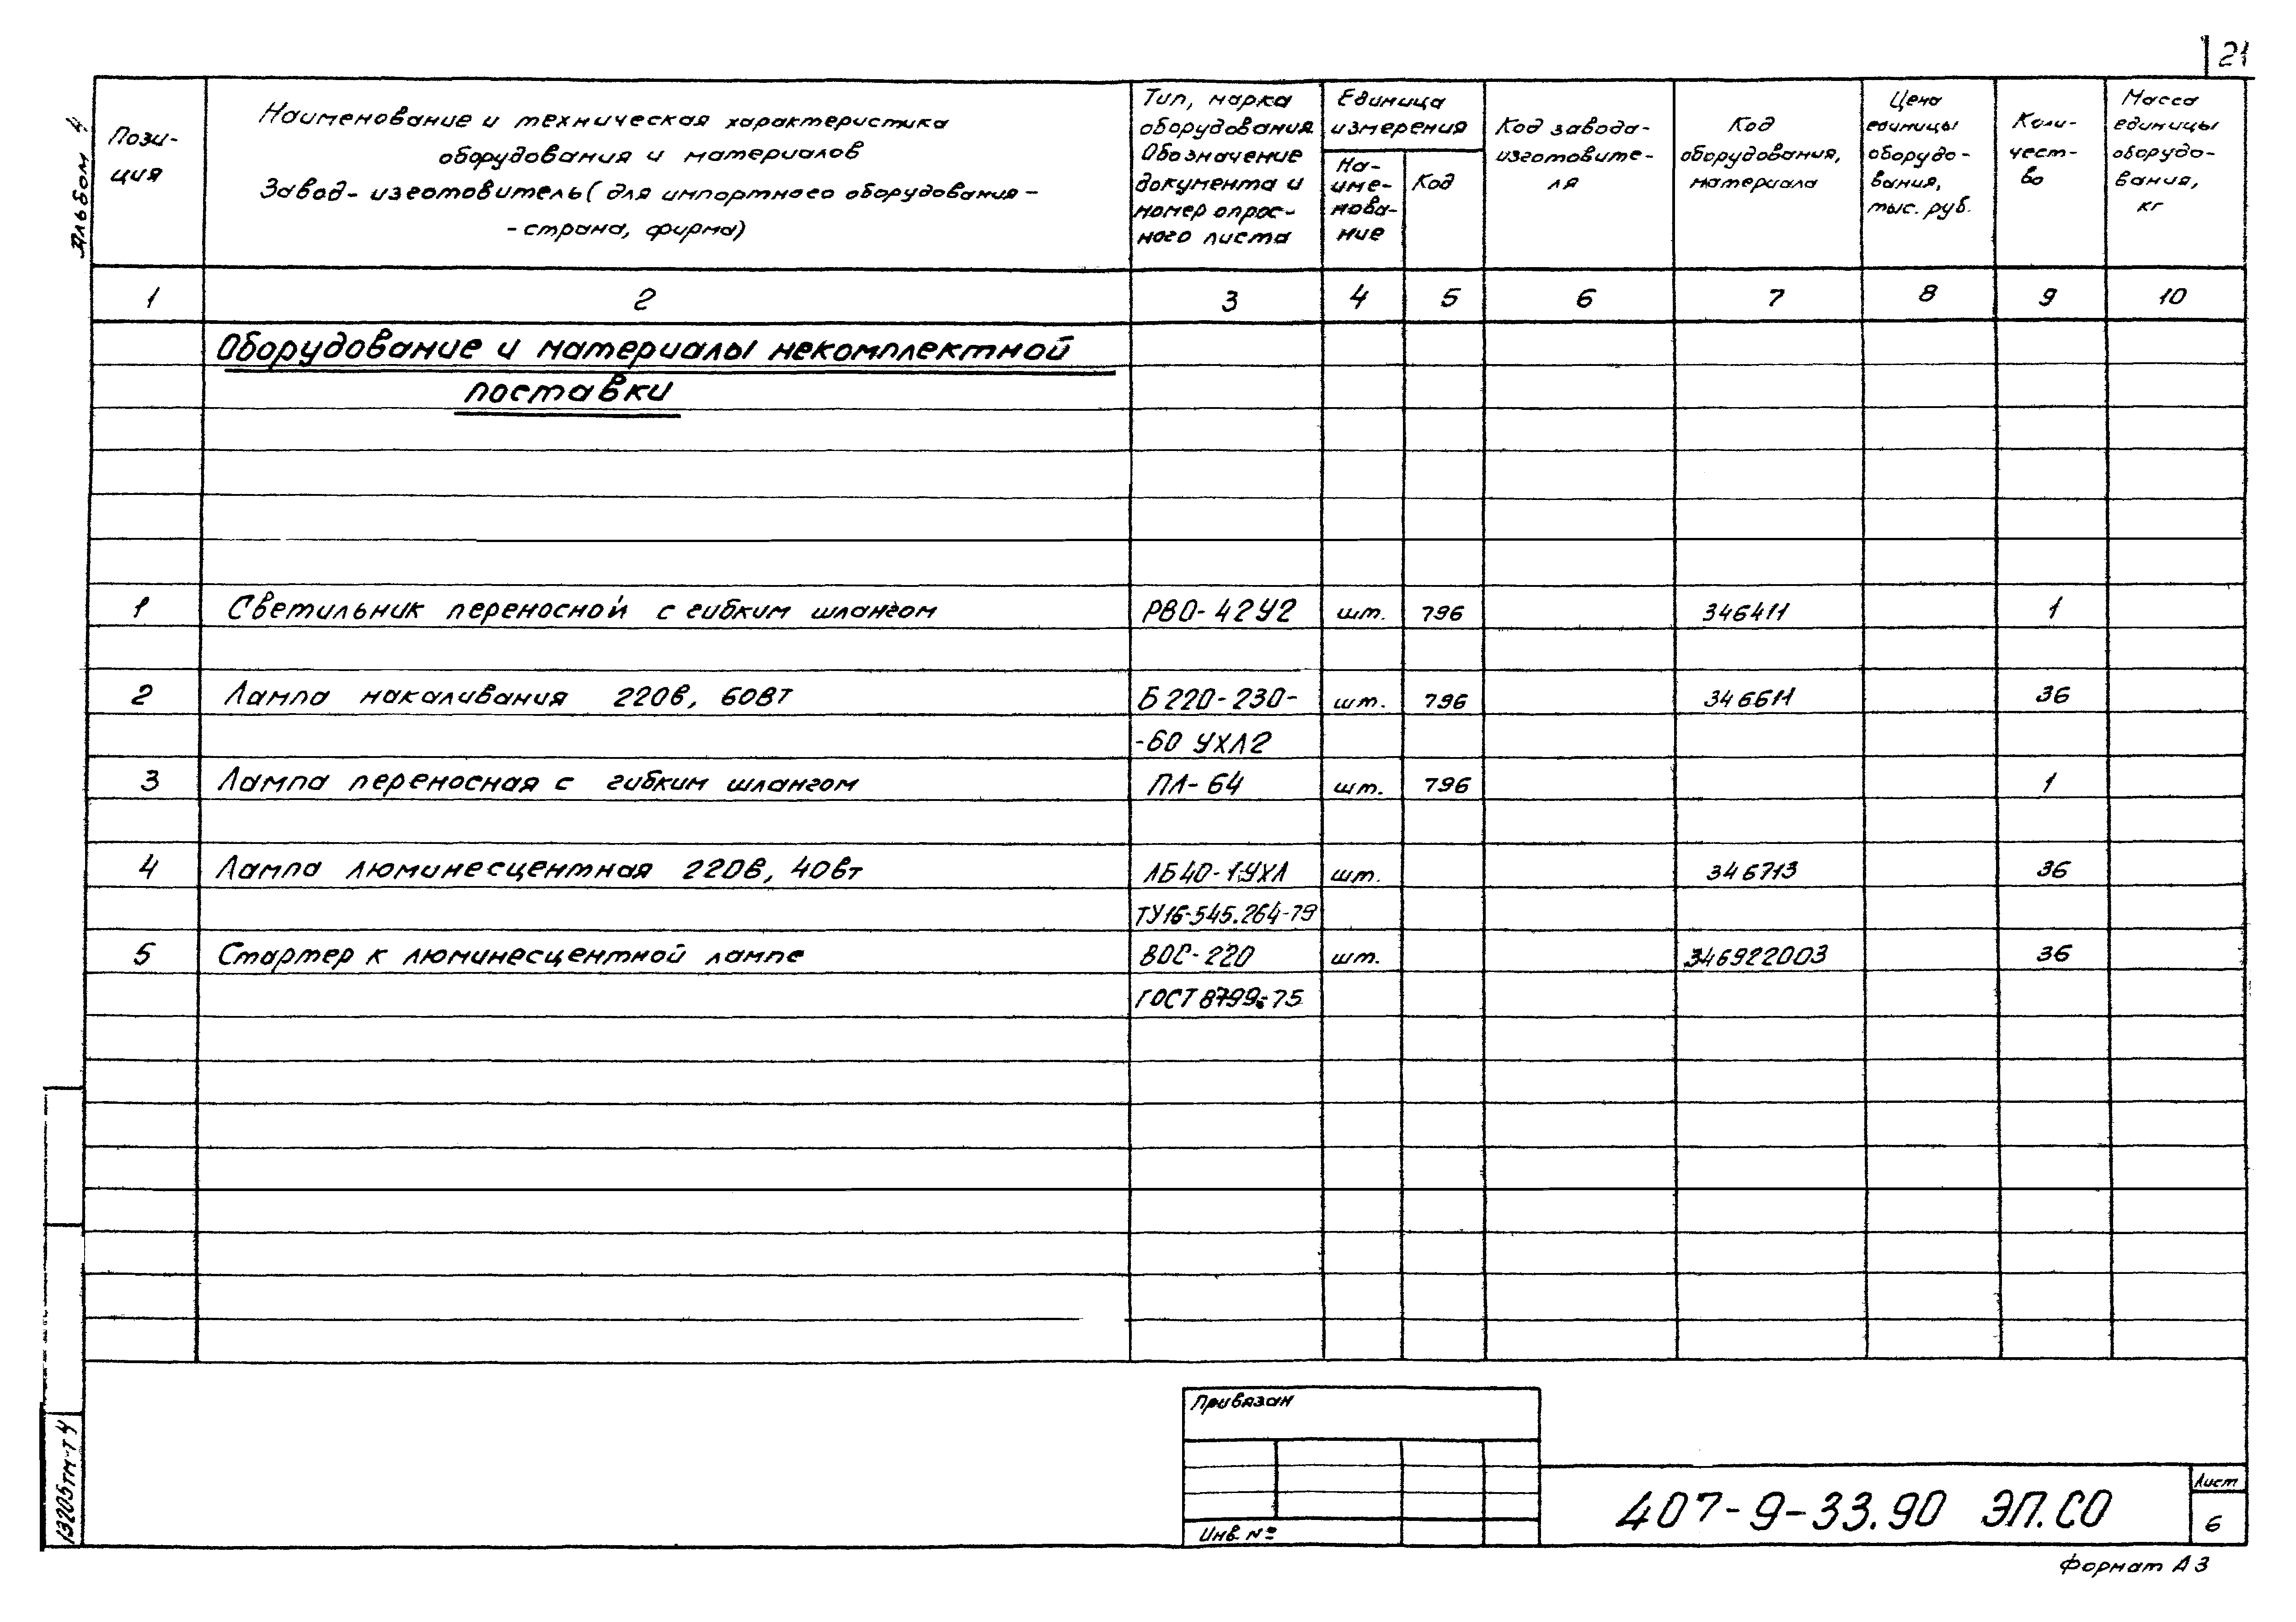 21
Альбом 4
Пози-
ция
Наименование и техническая характеристика
оборудования и материалов
Завод-изготовитель (для импортного оборудования -
- страна, фирма)
Тип, марка
оборудования
Обозначение
документа и
номер опрос-
ного листа
Единица
измерения
На-
име-
нова-
ние
Код
Код завода-
изготовите-
ля
Код
оборудования,
материала
Цена
единицы
оборудо-
вания,
тыс. руб.
Коли-
чест-
во
Масса
единицы
оборудо-
вания,
кг
1 2 3 4 5 6 7 8 9 10
Оборудование и материалы некомплектной
поставки
1 Светильник переносной с гибким шлангом РВО-42У2 шт. 796 346411 1
2 Лампа накаливания 220в, 60вт Б220-230- шт. 796 346611 36
-60 УХЛ2
3 Лампа переносная с гибким шлангом ПЛ-64 шт. 796 1
4 Лампа люминесцентная 220в, 40вт ЛБ40-1УХЛ шт. 346713 36
ТУ16-545.264-79
5 Стартер к люминесцентной лампе ВОС-220 шт. 346922003 36
ГОСТ 8799-75
Привязан
Инв. №
407-9-33.90 ЭП.СО
Лист
6
Формат А3
13205тм-т4